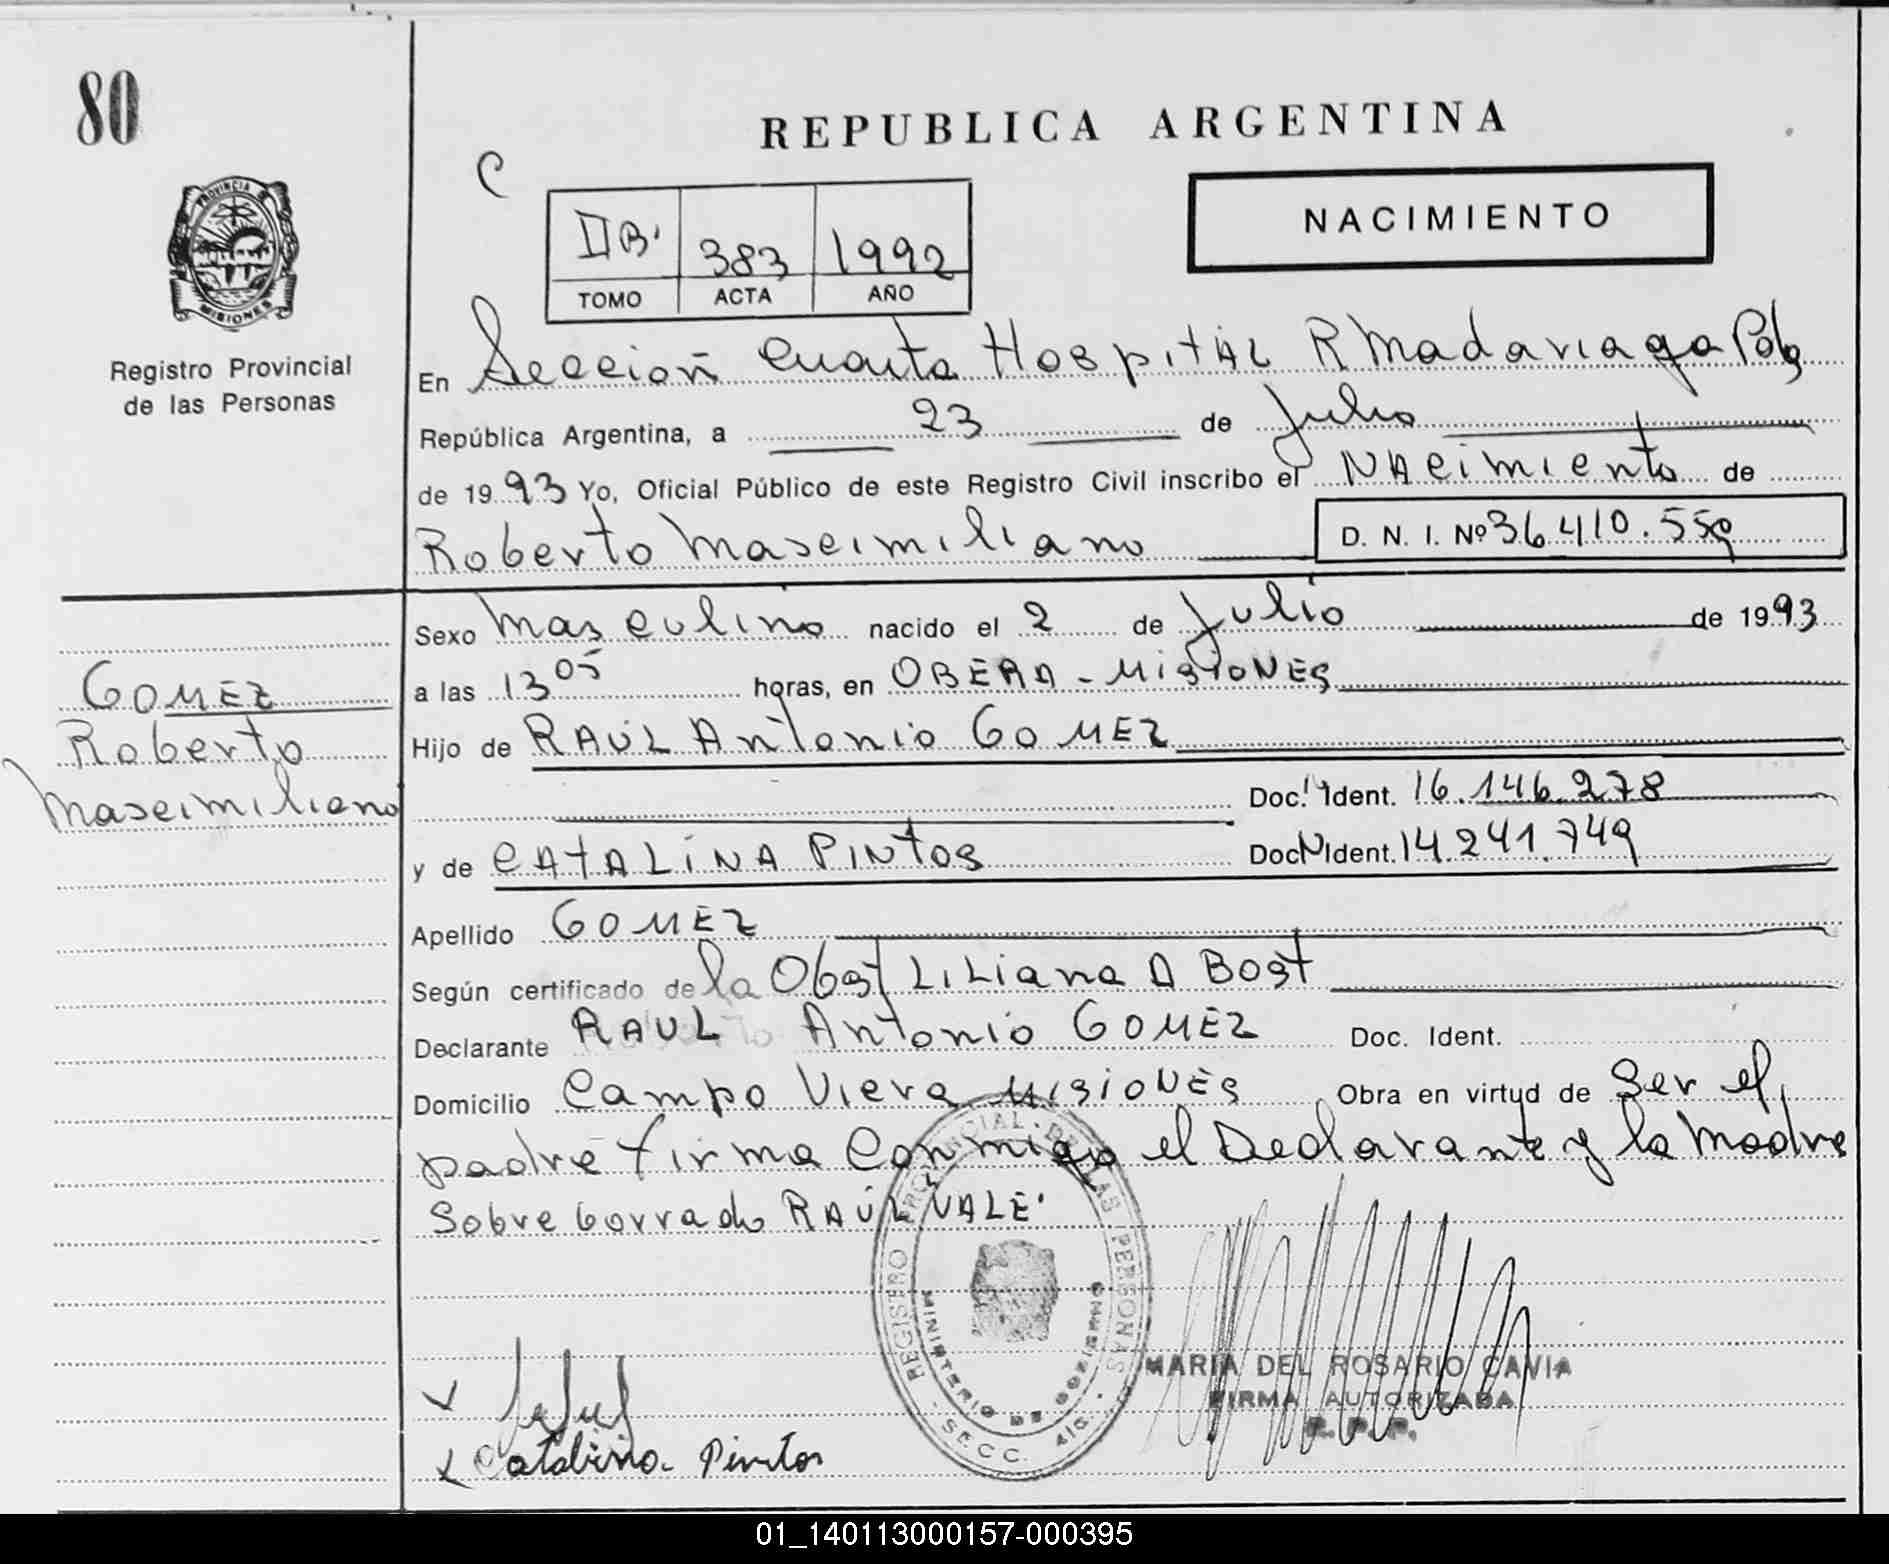 80
REPUBLICA ARGENTINA
C
PROVINCIA DE
MISIONES
II B.
383
1992
TOMO
ACTA
AÑO
NACIMIENTO
Registro Provincial
de las Personas
En Seccion Cuarta Hospital R Madariaga Pdas
República Argentina, a 23 de Julio
de 1993 Yo, Oficial Público de este Registro Civil inscribo el NAcimiento de
Roberto Mascimiliano
D. N. I. Nº 36.410.559
Sexo Masculino nacido el 2 de Julio de 1993
a las 13 05 horas, en OBERA - MISIONES
Hijo de RAÚL Antonio GOMEZ
Doc. N Ident. 16.146.278
y de CATALINA PINTOS Doc N Ident. 14.241.749
GOMEZ
Roberto
Mascimiliano
Apellido GOMEZ
Según certificado de la Obst LiLiana A Bost
Declarante RAUL Antonio GOMEZ Doc. Ident.
Domicilio Campo Viera MISIONES Obra en virtud de Ser el
padre firma Conmigo el Declarante y la Madre
Sobre borrado RAÚL VALE.
REGISTRO PROVINCIAL DE LAS PERSONAS
MINISTERIO DE GOBIERNO
- SECC. 4ta. -
MARIA DEL ROSARIO CAVIA
FIRMA AUTORIZADA
R. P. P.
Catalina Pintos
01_140113000157-000395